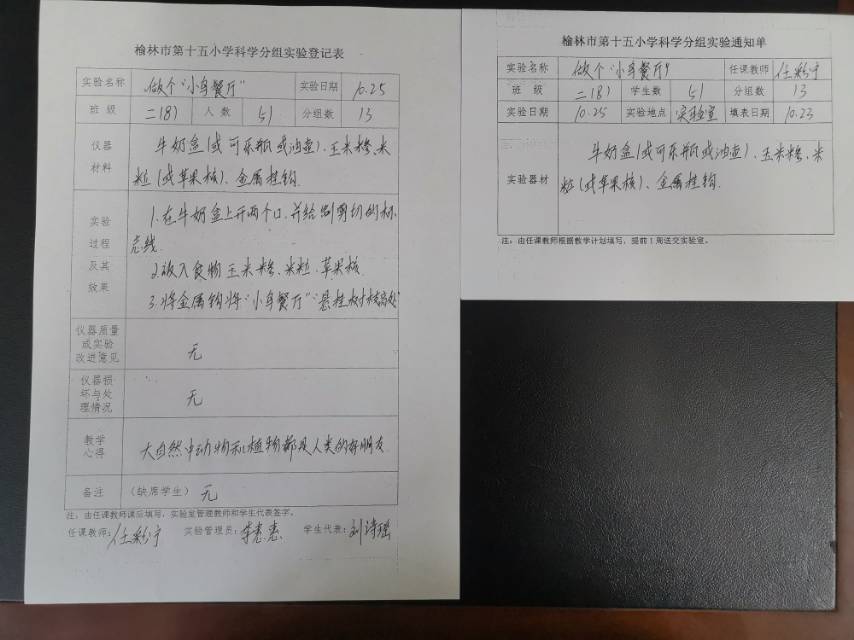 榆林市第十五小学科学分组实验登记表
实验名称 做个“小鸟餐厅” 实验日期 10.25
班 级 二(8) 人 数 51 分组数 13
仪器 牛奶盒(或可乐瓶或油壶)、玉米糁、米
材料 粒(或苹果核)、金属挂钩.
实验 1.在牛奶盒上开两个口,并给剪切的
过程
及其 2.放入食物玉米糁、米粒、苹果核.
效果 3.将金属钩将“小鸟餐厅”悬挂树枝高处
仪器质量
或实验
改进意见 无
仪器损
坏与处
理情况 无
教学
心得 大自然中动物和植物都是人类的好朋友.
备注 (缺席学生) 无
注:由任课教师课后填写,实验室管理教师和学生代表签字。
任课教师: 任彩宁 实验管理员: 李惠惠 学生代表: 刘诗瑶
榆林市第十五小学科学分组实验通知单
实验名称 做个“小鸟餐厅” 任课教师 任彩宁
班 级 二(8) 学生数 51 分组数 13
实验日期 10.25 实验地点 实验室 填表日期 10.23
实验器材 牛奶盒(或可乐瓶或油壶)、玉米糁、米
粒(或苹果核)、金属挂钩.
注:由任课教师根据教学计划填写,提前1周送交实验室。